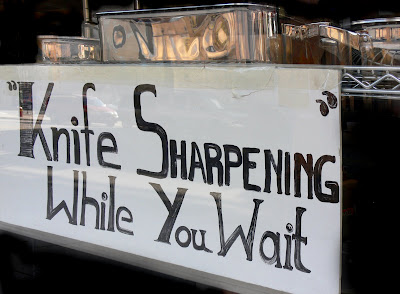 "Knife SHARPENING"
While You Wait